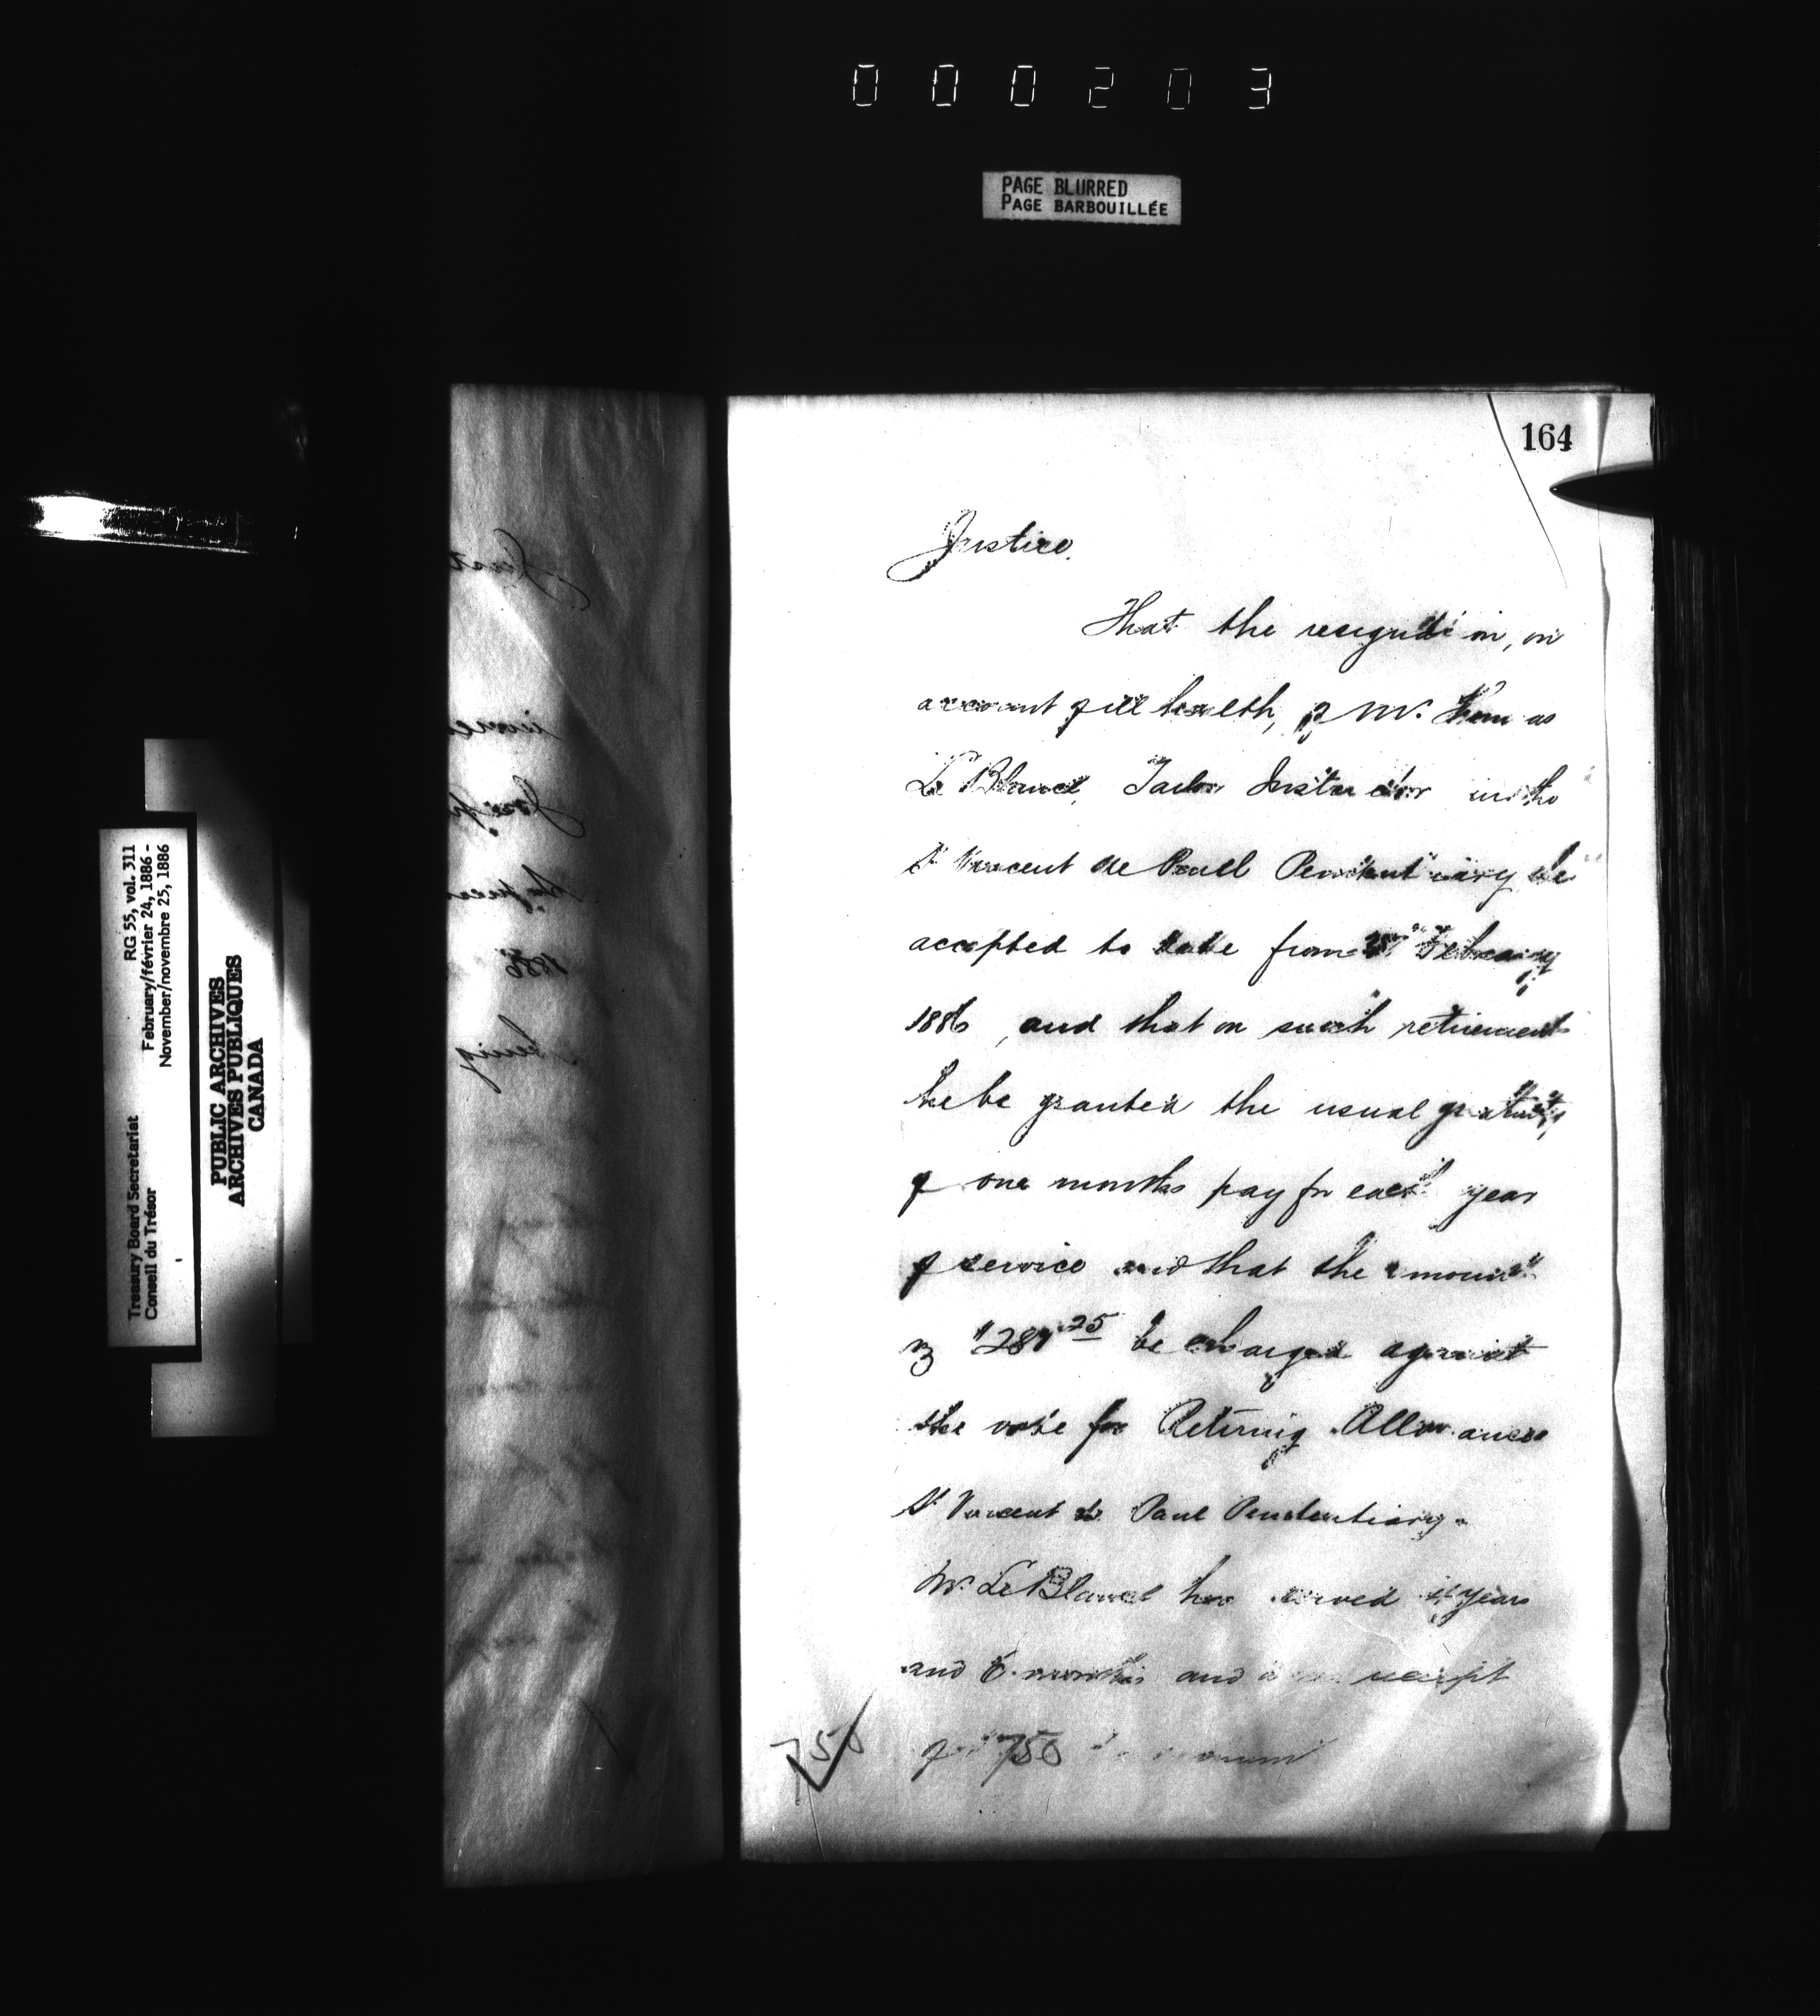 000203
PAGE BLURRED
PAGE BARBOUILLÉE
164
Justice.
That the resignation, on
account of ill health, of Mr. Thomas
Le Blanc, Tailor Instructor in the
St Vincent de Paul Penitentiary be
accepted to date from February
1886, and that on such retirement
he be granted the usual gratuity
of one months pay for each year
of service and that the amount
viz $281.25 be charged against
the vote for Retiring Allowances
St Vincent de Paul Penitentiary.
Mr. Le Blanc has served years
and 6 months and receipt
of $750 annum
750
RG 55, vol. 311
February/février 24, 1886 -
November/novembre 25, 1886
Treasury Board Secretariat
Conseil du Trésor
PUBLIC ARCHIVES
ARCHIVES PUBLIQUES
CANADA